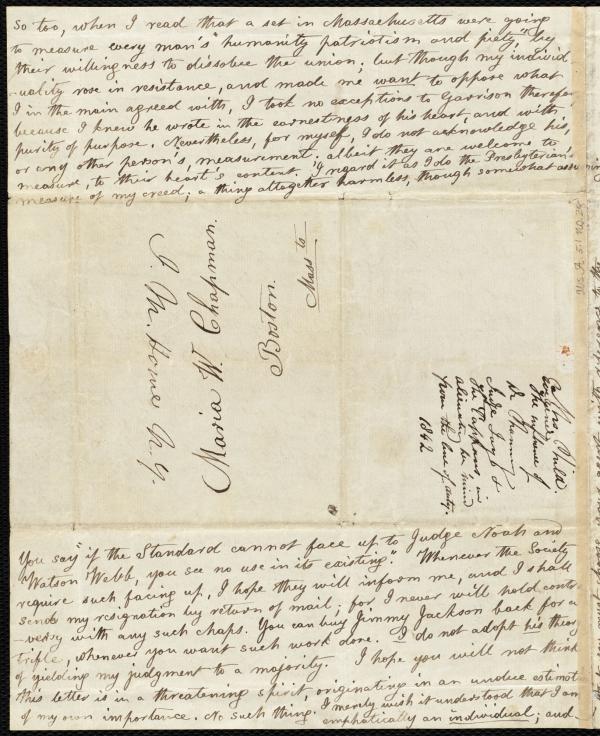 So too, when I read that a set in Massachusetts were going
to measure every man's "humanity patriotism and piety," by
their willingness to dissolve the union; but though my individ
-uality rose in resistance, and made me want to oppose what
I in the main agreed with, I took no exceptions to Garrison therefor
because I knew he wrote in the earnestness of his heart, and with
purity of purpose. Nevertheless, for myself, I do not acknowledge his,
or any other person's, measurement; albeit they are welcome to
measure, to their heart's content. I regard it as I do the Presbyterian's
measure of my creed; a thing altogether harmless, though somewhat
Mass ts
Boston.
Maria W. Chapman.
N.Y.
Ms. A. 5.1
Mrs. Child.
the influence of
Dr Channing
Judge Jay &
the Tappans, in
alienating her mind
from the line of duty.
1842
You say "if the Standard cannot face up to Judge Noah and
Watson Webb, you see no use in its existing." Whenever the Society
require such facing up, I hope they will inform me, and I shall
send my resignation by return of mail; for I never will hold contro
-versy with any such chaps. You can buy Jimmy Jackson back for a
trifle, whenever you want such work done. I do not adopt his theory
of yielding my judgment to a majority. I hope you will not think
this letter is in a threatening spirit, originating in an undue estimation
of my own importance. No such thing. I merely wish it understood that I am
emphatically an individual; and